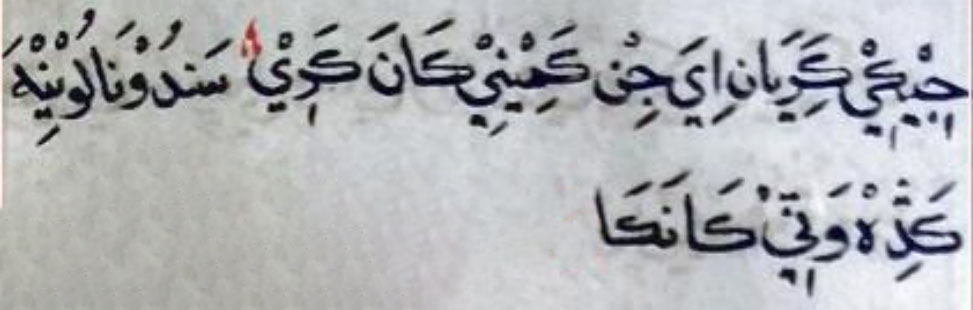 جِيْكِيْ كَرِيَانِ اِيَ جِنْ كَمِيْنِيْ كَانَ كَرِيْ سَندُوْنَا لُوْنِيْهَ
كَڎِهْ وَتِيْ كَانَكَا